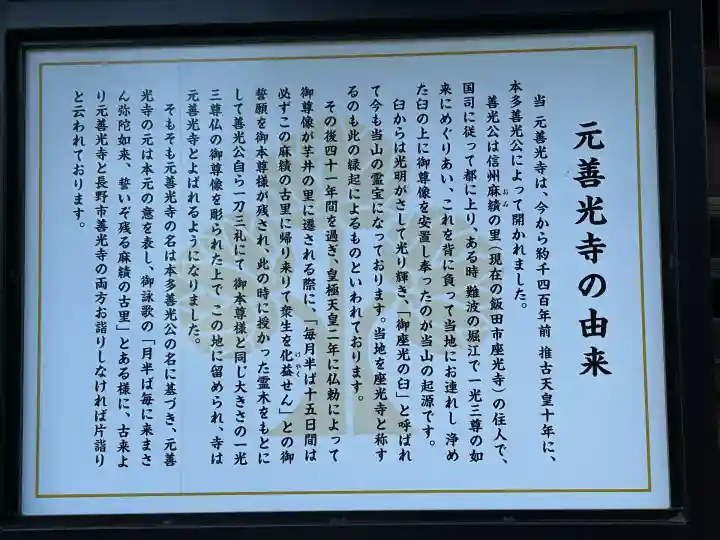 元善光寺の由来
当 元善光寺は、今から約千四百年前 推古天皇十年に、
本多善光公によって開かれました。
善光公は信州麻績の里（現在の飯田市座光寺）の住人で、
おみ
国司に従って都に上り、ある時 難波の堀江で一光三尊の如
来にめぐりあい、これを背に負って当地にお連れし 浄め
た臼の上に御尊像を安置し奉ったのが当山の起源です。
臼からは光明がさして光り輝き、「御座光の臼」と呼ばれ
て今も当山の霊宝になっております。当地を座光寺と称す
るのも此の縁起によるものといわれております。
その後四十一年間を過ぎ、皇極天皇二年に仏勅によって
御尊像が芋井の里に遷される際に、「毎月半ば十五日間は
必ずこの麻績の古里に帰り来りて衆生を化益せん」との御
けやく
誓願を御本尊様が残され、此の時に授かった霊木をもとに
して善光公自ら一刀三礼にて 御本尊様と同じ大きさの一光
三尊仏の御尊像を彫られた上で この地に留められ、寺は
元善光寺とよばれるようになりました。
そもそも元善光寺の名は本多善光公の名に基づき、元善
光寺の元は本元の意を表し、御詠歌の「月半ば毎に来まさ
ん弥陀如来、誓いぞ残る麻績の古里」とある様に、古来よ
り元善光寺と長野市善光寺の両方お詣りしなければ片詣り
と云われております。